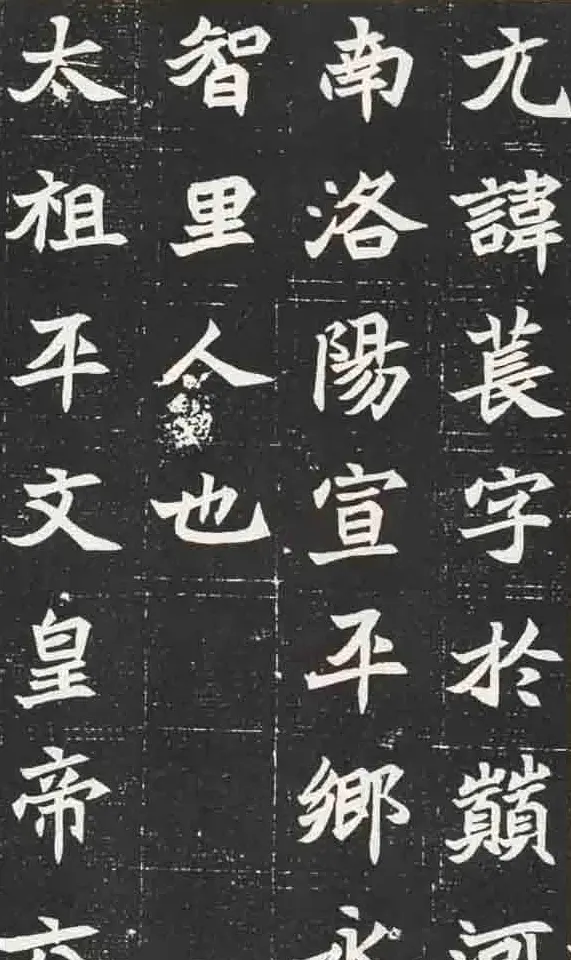 亢諱萇字於巔河
南洛陽宣平鄉永
智里人也
太祖平文皇帝六